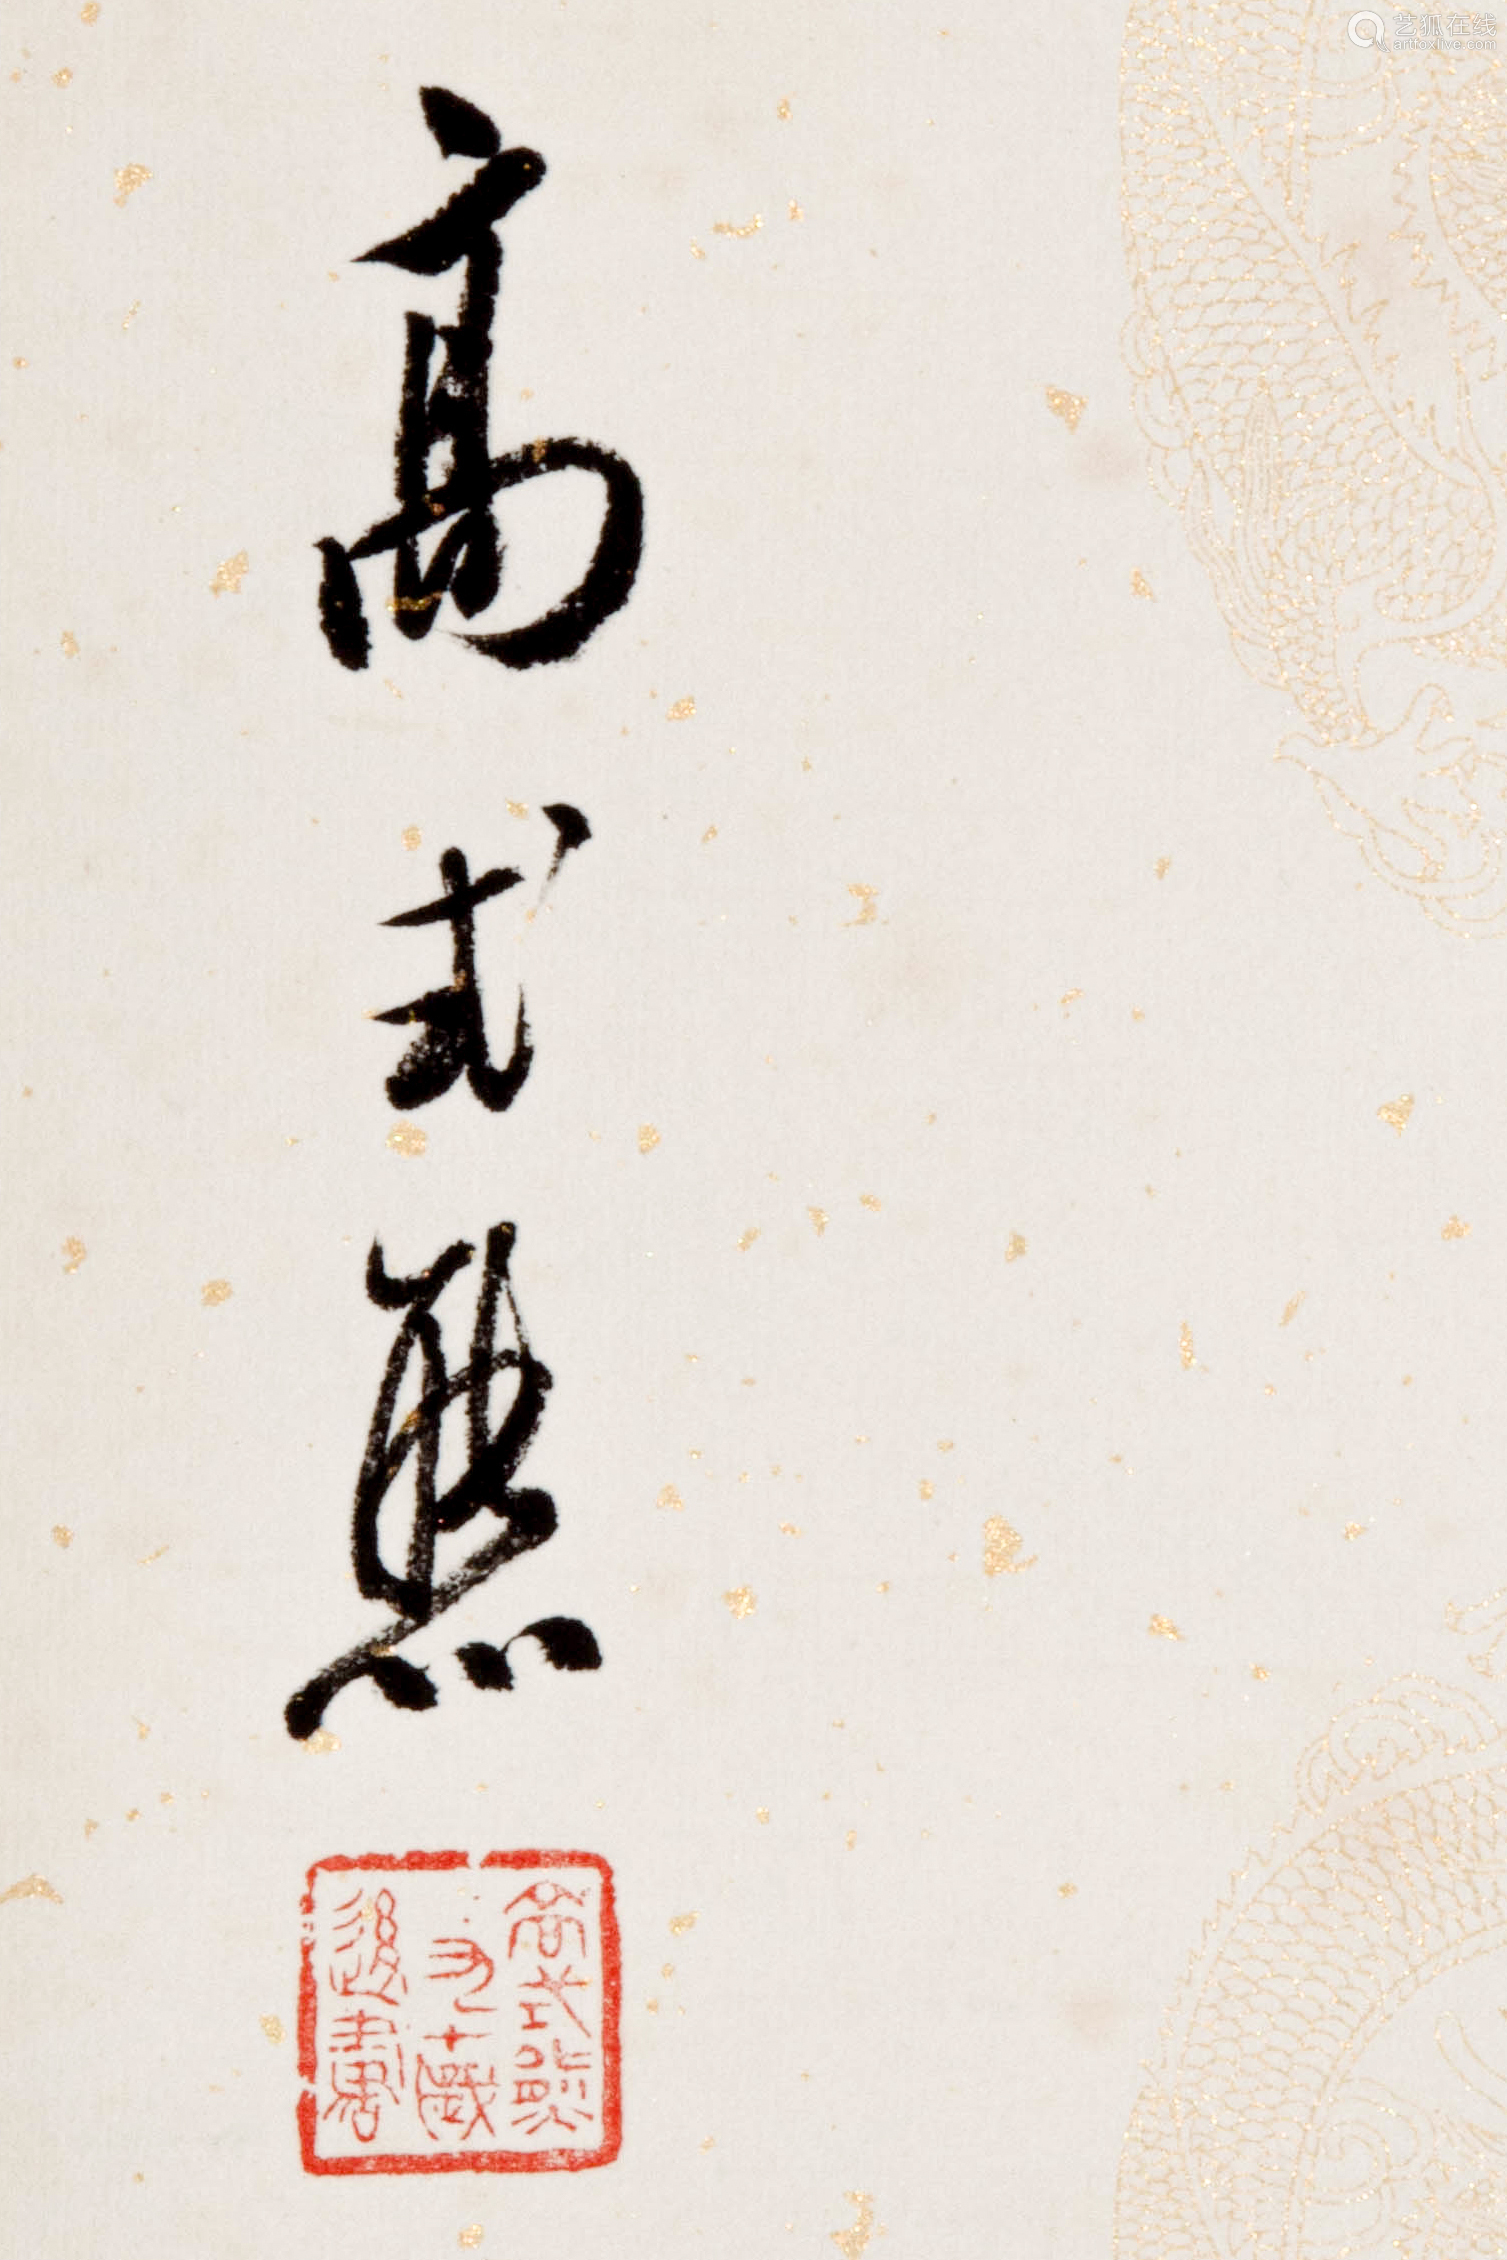 艺狐在线
artfoxlive.com
高式熊
高式熊
九十歲
後書